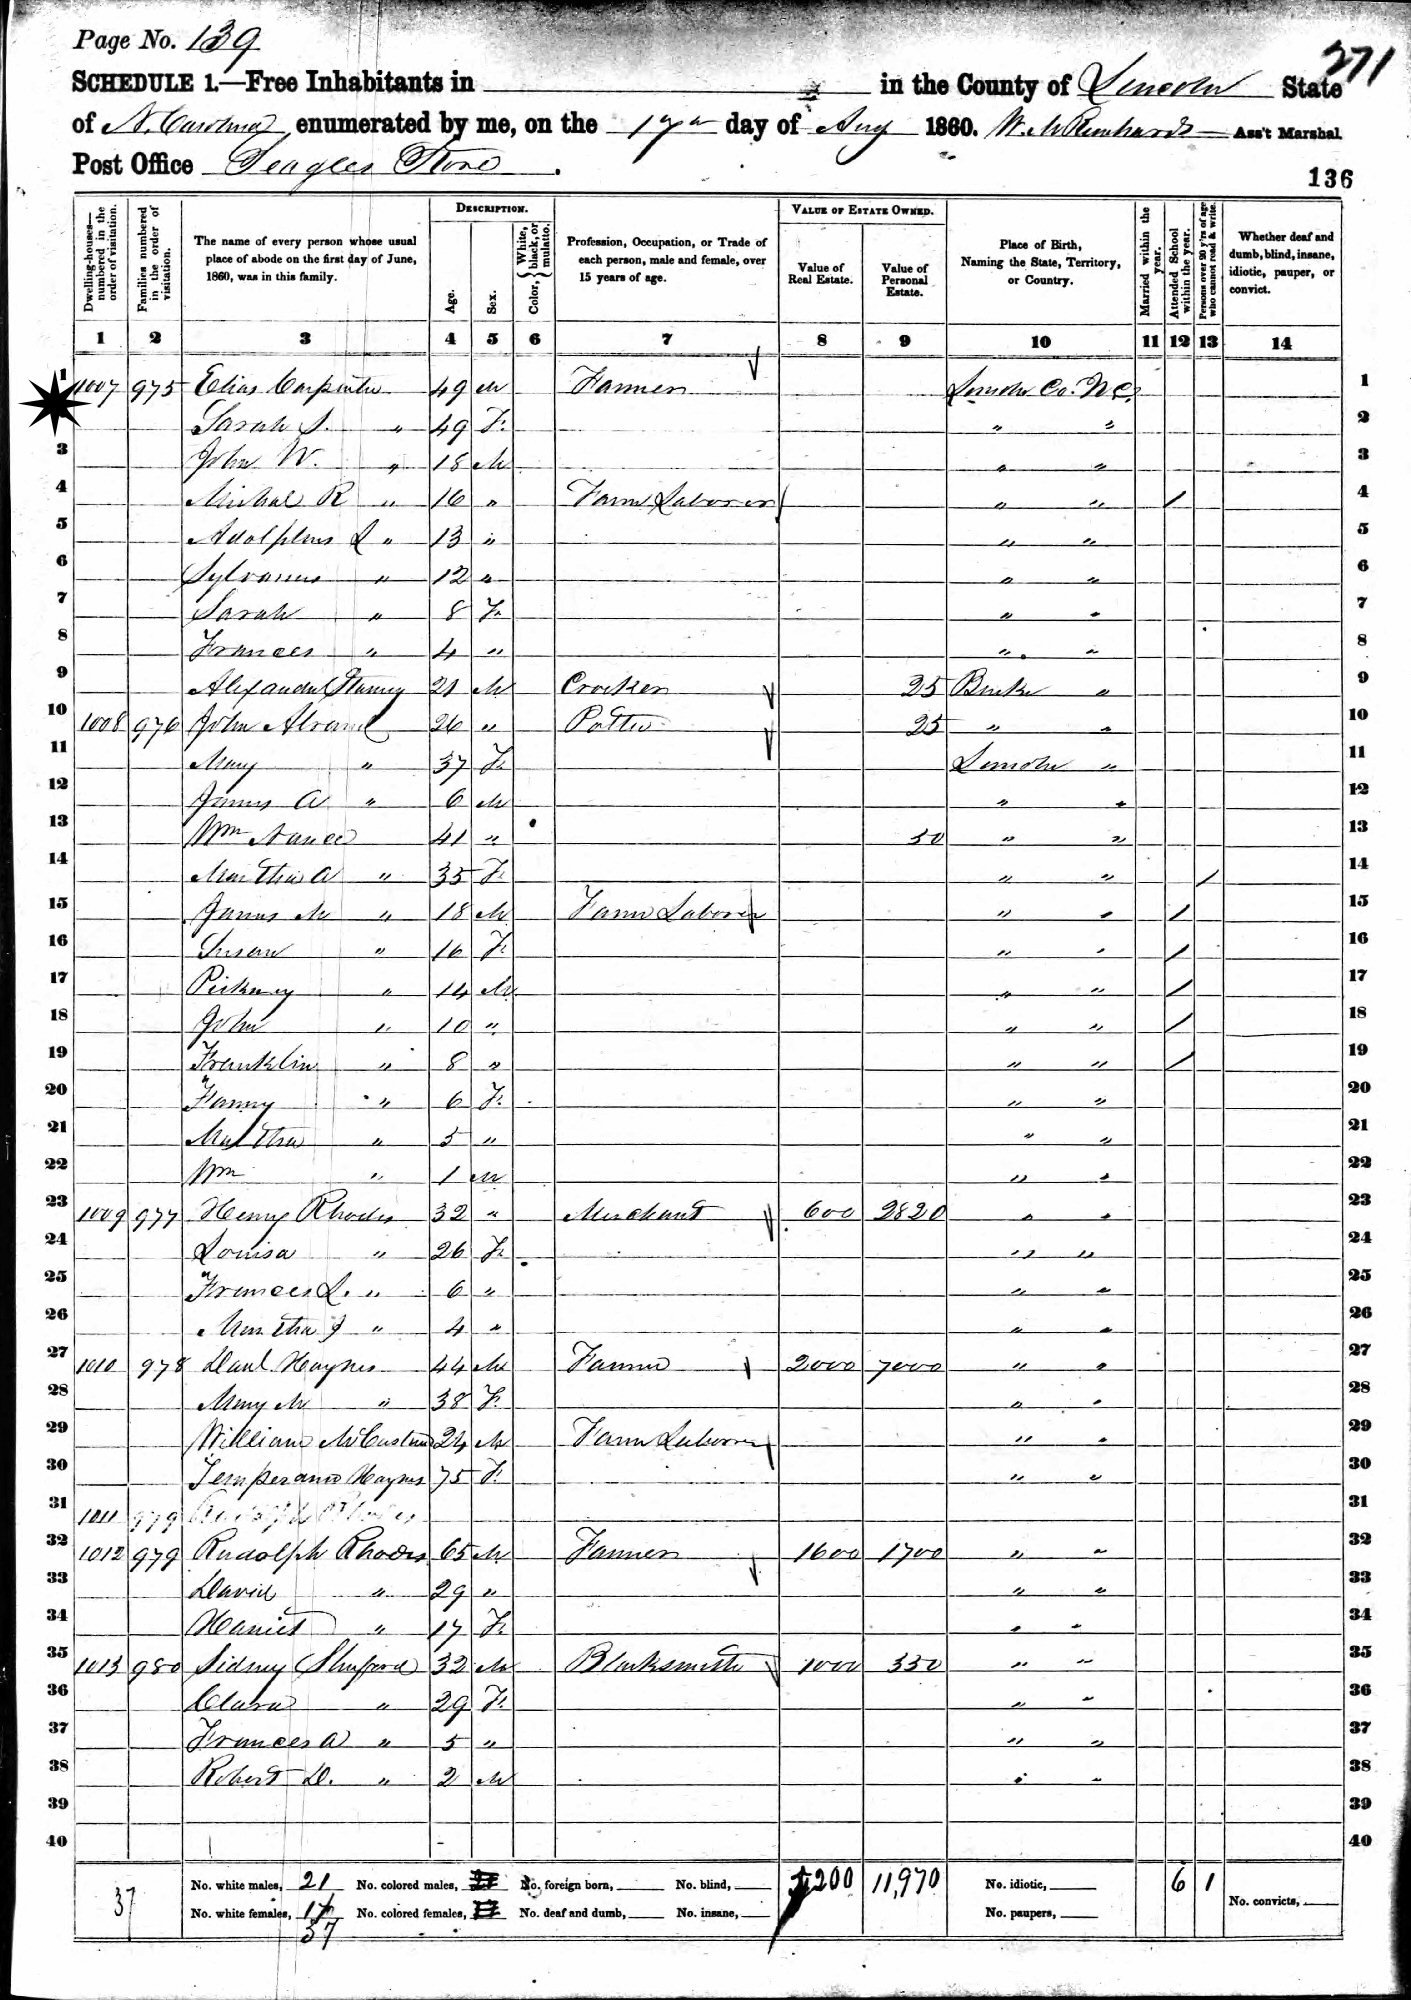 Page No. 139
271
SCHEDULE 1.—Free Inhabitants in in the County of Lincoln State
of N. Carolina enumerated by me, on the 17th day of Aug 1860. Ass't Marshal.
Post Office Seagles Store.
136
Dwelling-houses—numbered in the order of visitation. Families numbered in the order of visitation. The name of every person whose usual place of abode on the first day of June, 1860, was in this family. DESCRIPTION. Age. Sex. Color, White, black, or mulatto. Profession, Occupation, or Trade of each person, male and female, over 15 years of age. VALUE OF ESTATE OWNED. Value of Real Estate. Value of Personal Estate. Place of Birth, Naming the State, Territory, or Country. Married within the year. Attended School within the year. Persons over 20 y'rs of age who cannot read & write. Whether deaf and dumb, blind, insane, idiotic, pauper, or convict.
1 2 3 4 5 6 7 8 9 10 11 12 13 14
1 1007 975 Elias Carpenter 49 M Farmer Lincoln Co. N.C. 1
Sarah S. " 49 F " " 2
3 John W. " 18 M " " 3
4 Michael R " 16 " Farm Laborer " " / 4
5 Adolphus L " 13 " " " 5
6 Sylvanus " 12 " " " 6
7 Sarah " 8 F " " 7
8 Frances " 4 " " " 8
9 Alexander 21 M 25 Burke " 9
10 1008 976 John 26 " Potter 25 " " 10
11 Mary " 37 F Lincoln " 11
12 James A " 6 M " " 12
13 Wm Nance 41 " 50 " " 13
14 Martha A " 35 F " " / 14
15 James M " 18 M Farm Laborer " " / 15
16 Susan " 16 F " " / 16
17 Pinkney " 14 M " " / 17
18 John " 10 " " " / 18
19 Franklin " 8 " " " / 19
20 Fanny " 6 F " " 20
21 Martha " 5 " " " 21
22 Wm " 1 M " " 22
23 1009 977 Henry Rhodes 32 " Merchant 600 2820 " " 23
24 Louisa " 26 F " " 24
25 Frances L. " 6 " " " 25
26 Martha J " 4 " " " 26
27 1010 978 Danl Haynes 44 M Farmer 2000 7000 " " 27
28 Mary M " 38 F " " 28
29 William 24 M Farm Laborer " " 29
30 Temperance Haynes 75 F " " 30
31 1011 979 31
32 1012 979 Rudolph Rhodes 65 M Farmer 1600 1700 " " 32
33 David " 29 " " " 33
34 Harriet " 17 F " " 34
35 1013 980 Sidney Shuford 32 M Blacksmith 1000 350 " " 35
36 Clara " 29 F " " 36
37 Frances A " 5 " " " 37
38 Robert D. " 2 M " " 38
39 39
40 40
37 No. white males, 21 No. colored males, No. foreign born, No. blind, 5200 11,970 No. idiotic, 6 1
No. white females, No. colored females, No. deaf and dumb, No. insane, No. paupers, No. convicts,
37